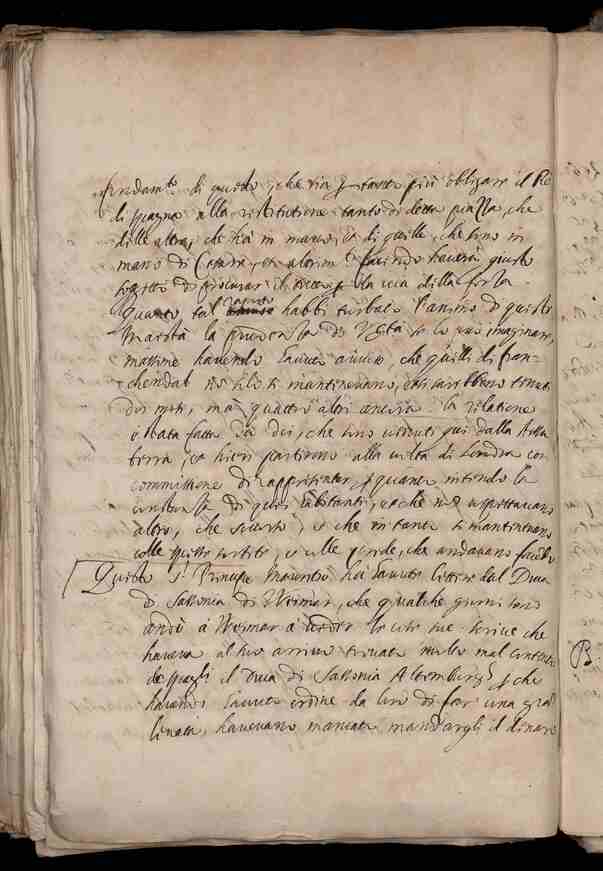 fondam.to di questo, che sia per tanto più obligare il Re
di spagna alla restitutione tanto di detta piazza, che
dell'altre, che hà in mano, et di quelle, che sono in
mano di Cesare, et altri
soggetto di procurar il per la via della forza.
Quanto tal habbi turbato l'animo di questa
Maestà la prudenza di V.stà se lo può imaginare,
massime havendo havuto aviso, che quelli di fran=
chendal non solo si mantenevano,
doi mesi, mà quattro altri ancora. la relatione
è stata fatta da doi, che sono venuti quì dalla
terra, et hieri partirono alla volta di Londra con
commissione di rappresentar quanto intendo la
constanza di quei habitanti, et che non aspettavano
altro, che soccorso, et che in tanto si mantenevano
colle spesse sortite, et colle prede, che andavano facendo
Questo S.r Principe Mauritio hà havuto lettere dal Duca
di Sassonia di Weimar, che qualche giorni sono
andò à Weimar à veder le cose sue. scrive che
haveva al suo arrivo trovato molto mal contento
de quegli il Duca di Sassonia Altemburg, per che
havendo havuto ordine da loro di far una gran
levata, havevano mancato mandargli il dinaro
B.